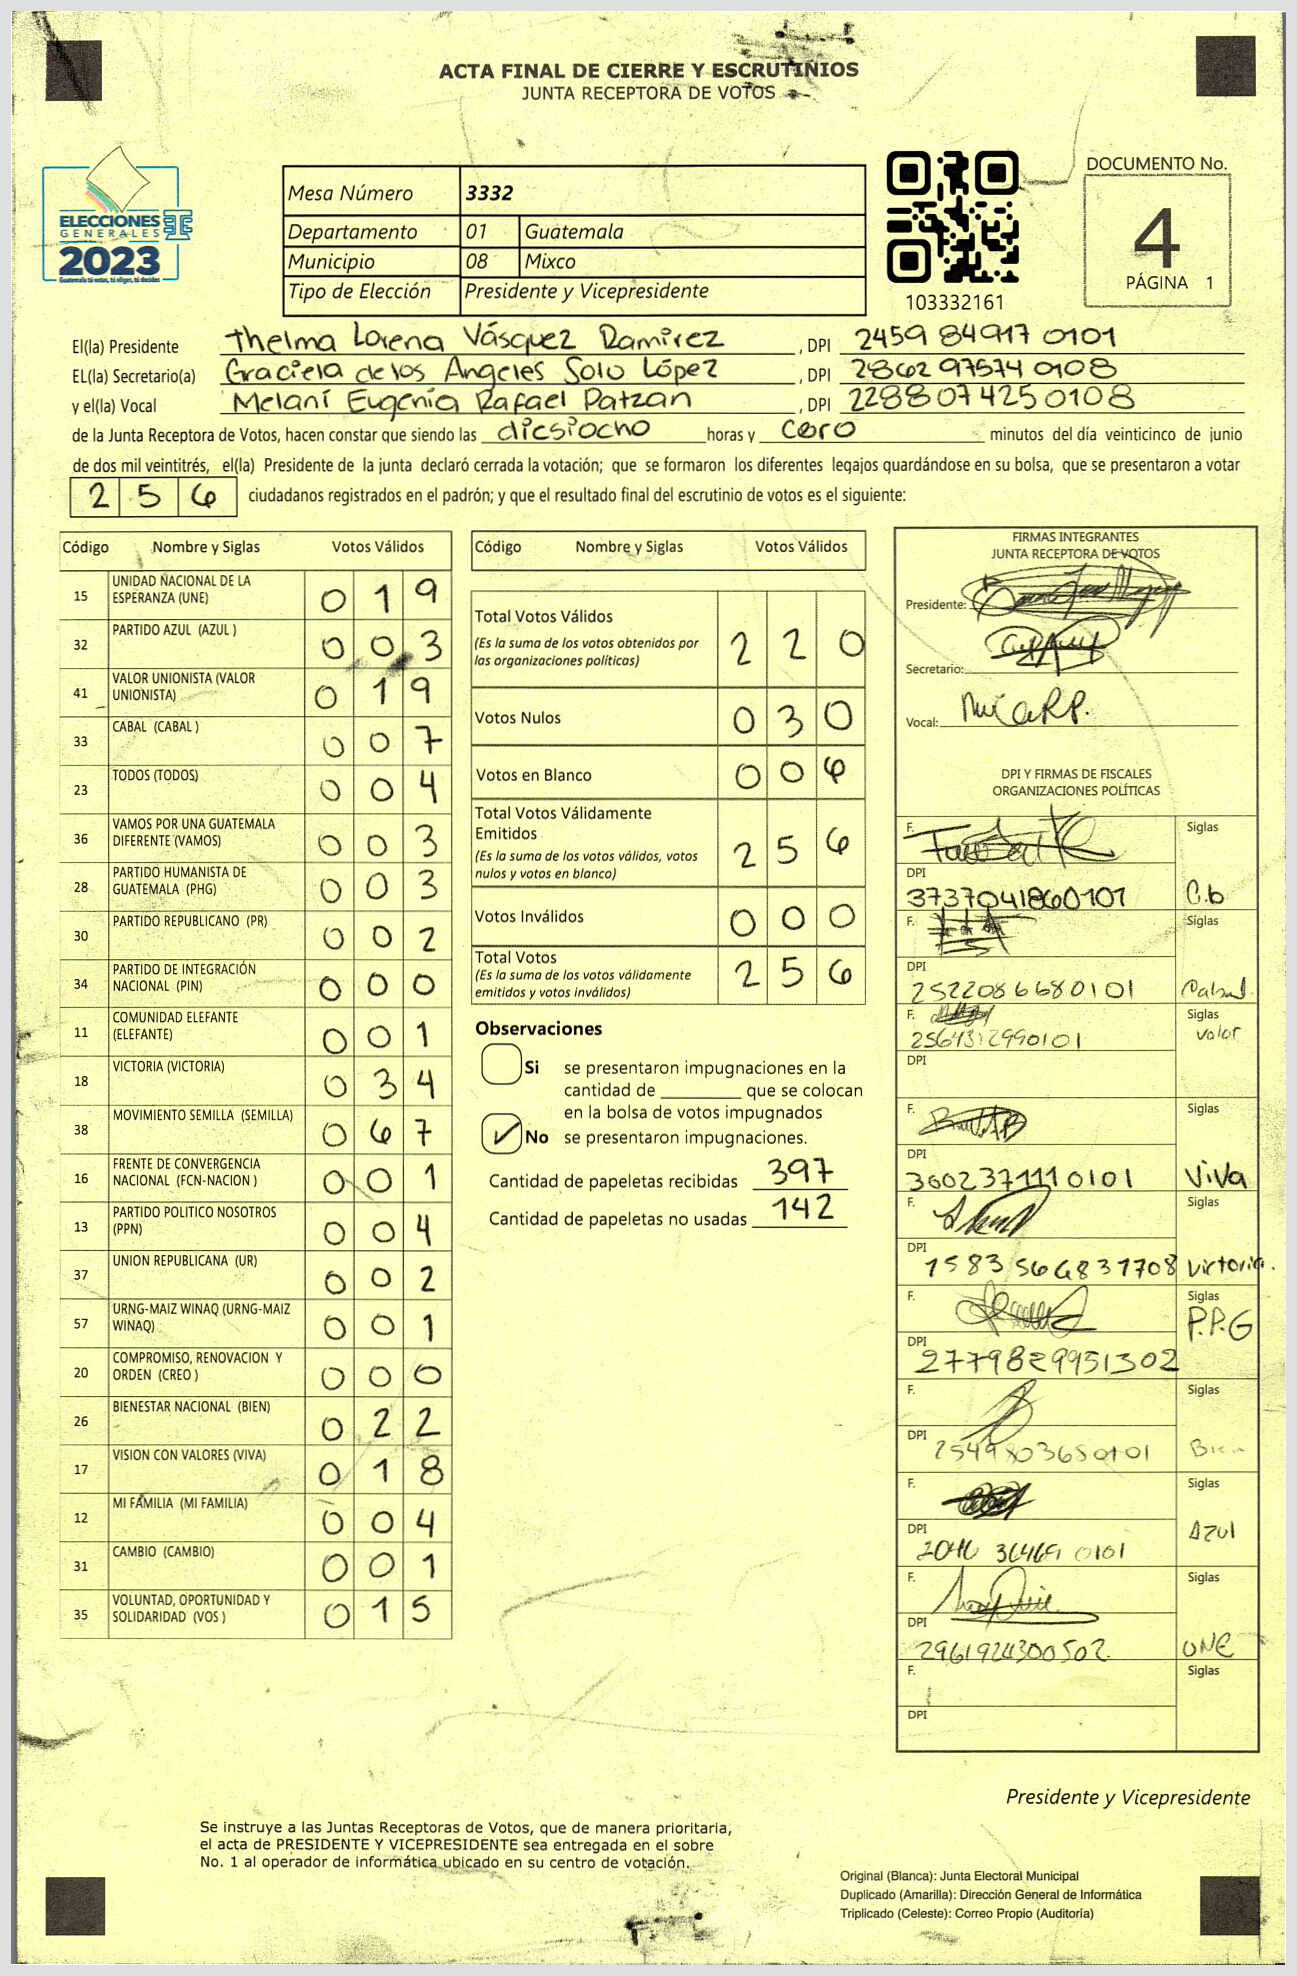 ACTA FINAL DE CIERRE Y ESCRUTINIOS
JUNTA RECEPTORA DE VOTOS
ELECCIONES
GENERALES
2023
Guatemala tú votas, tú eliges, tú decides
Mesa Número 3332
Departamento 01 Guatemala
Municipio 08 Mixco
Tipo de Elección Presidente y Vicepresidente
103332161
DOCUMENTO No.
4
PÁGINA 1
El(la) Presidente Thelma Lorena Vásquez Ramirez, DPI 2459 84917 0101
EL(la) Secretario(a) Graciela de los Angeles Solo López, DPI 2862 97574 0108
y el(la) Vocal Melaní Eugenia Rafael Patzan, DPI 2288074250108
de la Junta Receptora de Votos, hacen constar que siendo las diesiocho horas y cero minutos del día veinticinco de junio
de dos mil veintitrés, el(la) Presidente de la junta declaró cerrada la votación; que se formaron los diferentes legajos guardándose en su bolsa, que se presentaron a votar
256 ciudadanos registrados en el padrón; y que el resultado final del escrutinio de votos es el siguiente:
Código Nombre y Siglas Votos Válidos
15 UNIDAD NACIONAL DE LA ESPERANZA (UNE) 019
32 PARTIDO AZUL (AZUL ) 003
41 VALOR UNIONISTA (VALOR UNIONISTA) 019
33 CABAL (CABAL ) 007
23 TODOS (TODOS) 004
36 VAMOS POR UNA GUATEMALA DIFERENTE (VAMOS) 003
28 PARTIDO HUMANISTA DE GUATEMALA (PHG) 003
30 PARTIDO REPUBLICANO (PR) 002
34 PARTIDO DE INTEGRACIÓN NACIONAL (PIN) 000
11 COMUNIDAD ELEFANTE (ELEFANTE) 001
18 VICTORIA (VICTORIA) 034
38 MOVIMIENTO SEMILLA (SEMILLA) 067
16 FRENTE DE CONVERGENCIA NACIONAL (FCN-NACION ) 001
13 PARTIDO POLITICO NOSOTROS (PPN) 004
37 UNION REPUBLICANA (UR) 002
57 URNG-MAIZ WINAQ (URNG-MAIZ WINAQ) 001
20 COMPROMISO, RENOVACION Y ORDEN (CREO ) 000
26 BIENESTAR NACIONAL (BIEN) 022
17 VISION CON VALORES (VIVA) 018
12 MI FAMILIA (MI FAMILIA) 004
31 CAMBIO (CAMBIO) 001
35 VOLUNTAD, OPORTUNIDAD Y SOLIDARIDAD (VOS ) 015
Código Nombre y Siglas Votos Válidos
Total Votos Válidos 220
(Es la suma de los votos obtenidos por
las organizaciones políticas)
Votos Nulos 030
Votos en Blanco 006
Total Votos Válidamente
Emitidos 256
(Es la suma de los votos válidos, votos
nulos y votos en blanco)
Votos Inválidos 000
Total Votos 256
(Es la suma de los votos válidamente
emitidos y votos inválidos)
Observaciones
Si se presentaron impugnaciones en la
cantidad de ________ que se colocan
en la bolsa de votos impugnados
No se presentaron impugnaciones.
Cantidad de papeletas recibidas 397
Cantidad de papeletas no usadas 142
FIRMAS INTEGRANTES
JUNTA RECEPTORA DE VOTOS
Presidente:
Secretario:
Vocal:
DPI Y FIRMAS DE FISCALES
ORGANIZACIONES POLÍTICAS
F. Siglas
DPI
3737041860101 C.b
F. Siglas
DPI
2522086680101
F. Siglas
2564312990101 valor
DPI
F. Siglas
DPI
3002371110101 ViVa
F. Siglas
DPI
1583566831708 Victoria.
F. Siglas
P.P.G
DPI
2779829951302
F. Siglas
DPI
2549803650101 Bien
F. Siglas
DPI Azul
0101
F. Siglas
DPI
2961924300502 UNE
F. Siglas
DPI
Presidente y Vicepresidente
Se instruye a las Juntas Receptoras de Votos, que de manera prioritaria,
el acta de PRESIDENTE Y VICEPRESIDENTE sea entregada en el sobre
No. 1 al operador de informática ubicado en su centro de votación.
Original (Blanca): Junta Electoral Municipal
Duplicado (Amarilla): Dirección General de Informática
Triplicado (Celeste): Correo Propio (Auditoría)